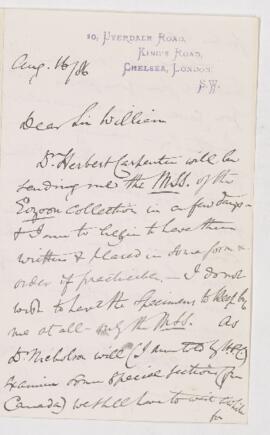 10, Uverdale Road,
King's Road,
Chelsea, London.
S.W.
Aug. 16/86
Dear Sir William
Dr. Herbert Carpenter will be
sending me the MSS. of the
Eozoon collection in a few days
& I am to begin to have them
written & placed in some form &
order if practicable. — I do not
wish to have the specimens to keep by
me at all — only the MSS. As
Dr Nicholson will (I am told by
examine some special sections (for
Canada) we shall have to wait
for